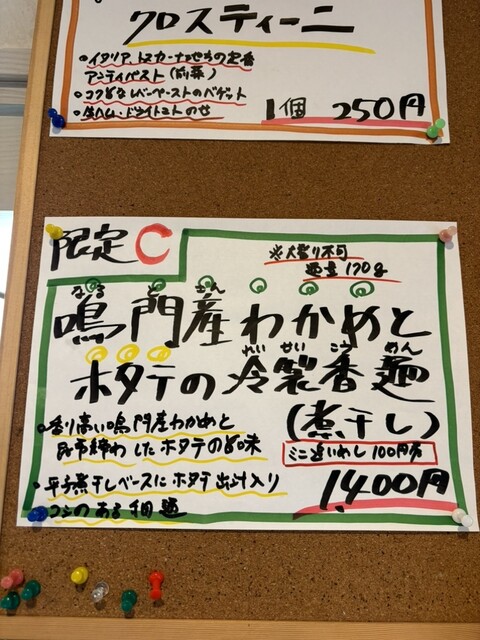 クロスティーニ
•イタリア、トスカーナ地方の定番
アンティパスト(前菜)
•コクどなレバーペーストのバゲット
•生ハム・ドライトマトのせ
1個 250円
限定C
※大盛り不可
麺量170g
なる と さん
鳴門産わかめと
れい せい こう めん
ホタテの冷製香麺
(煮干し)
•香り高い鳴門産わかめと
昆布締めしたホタテの旨味
ミニ追いめし100円有
•平子煮干しベースにホタテ出汁入り
コシのある麺
1,400円